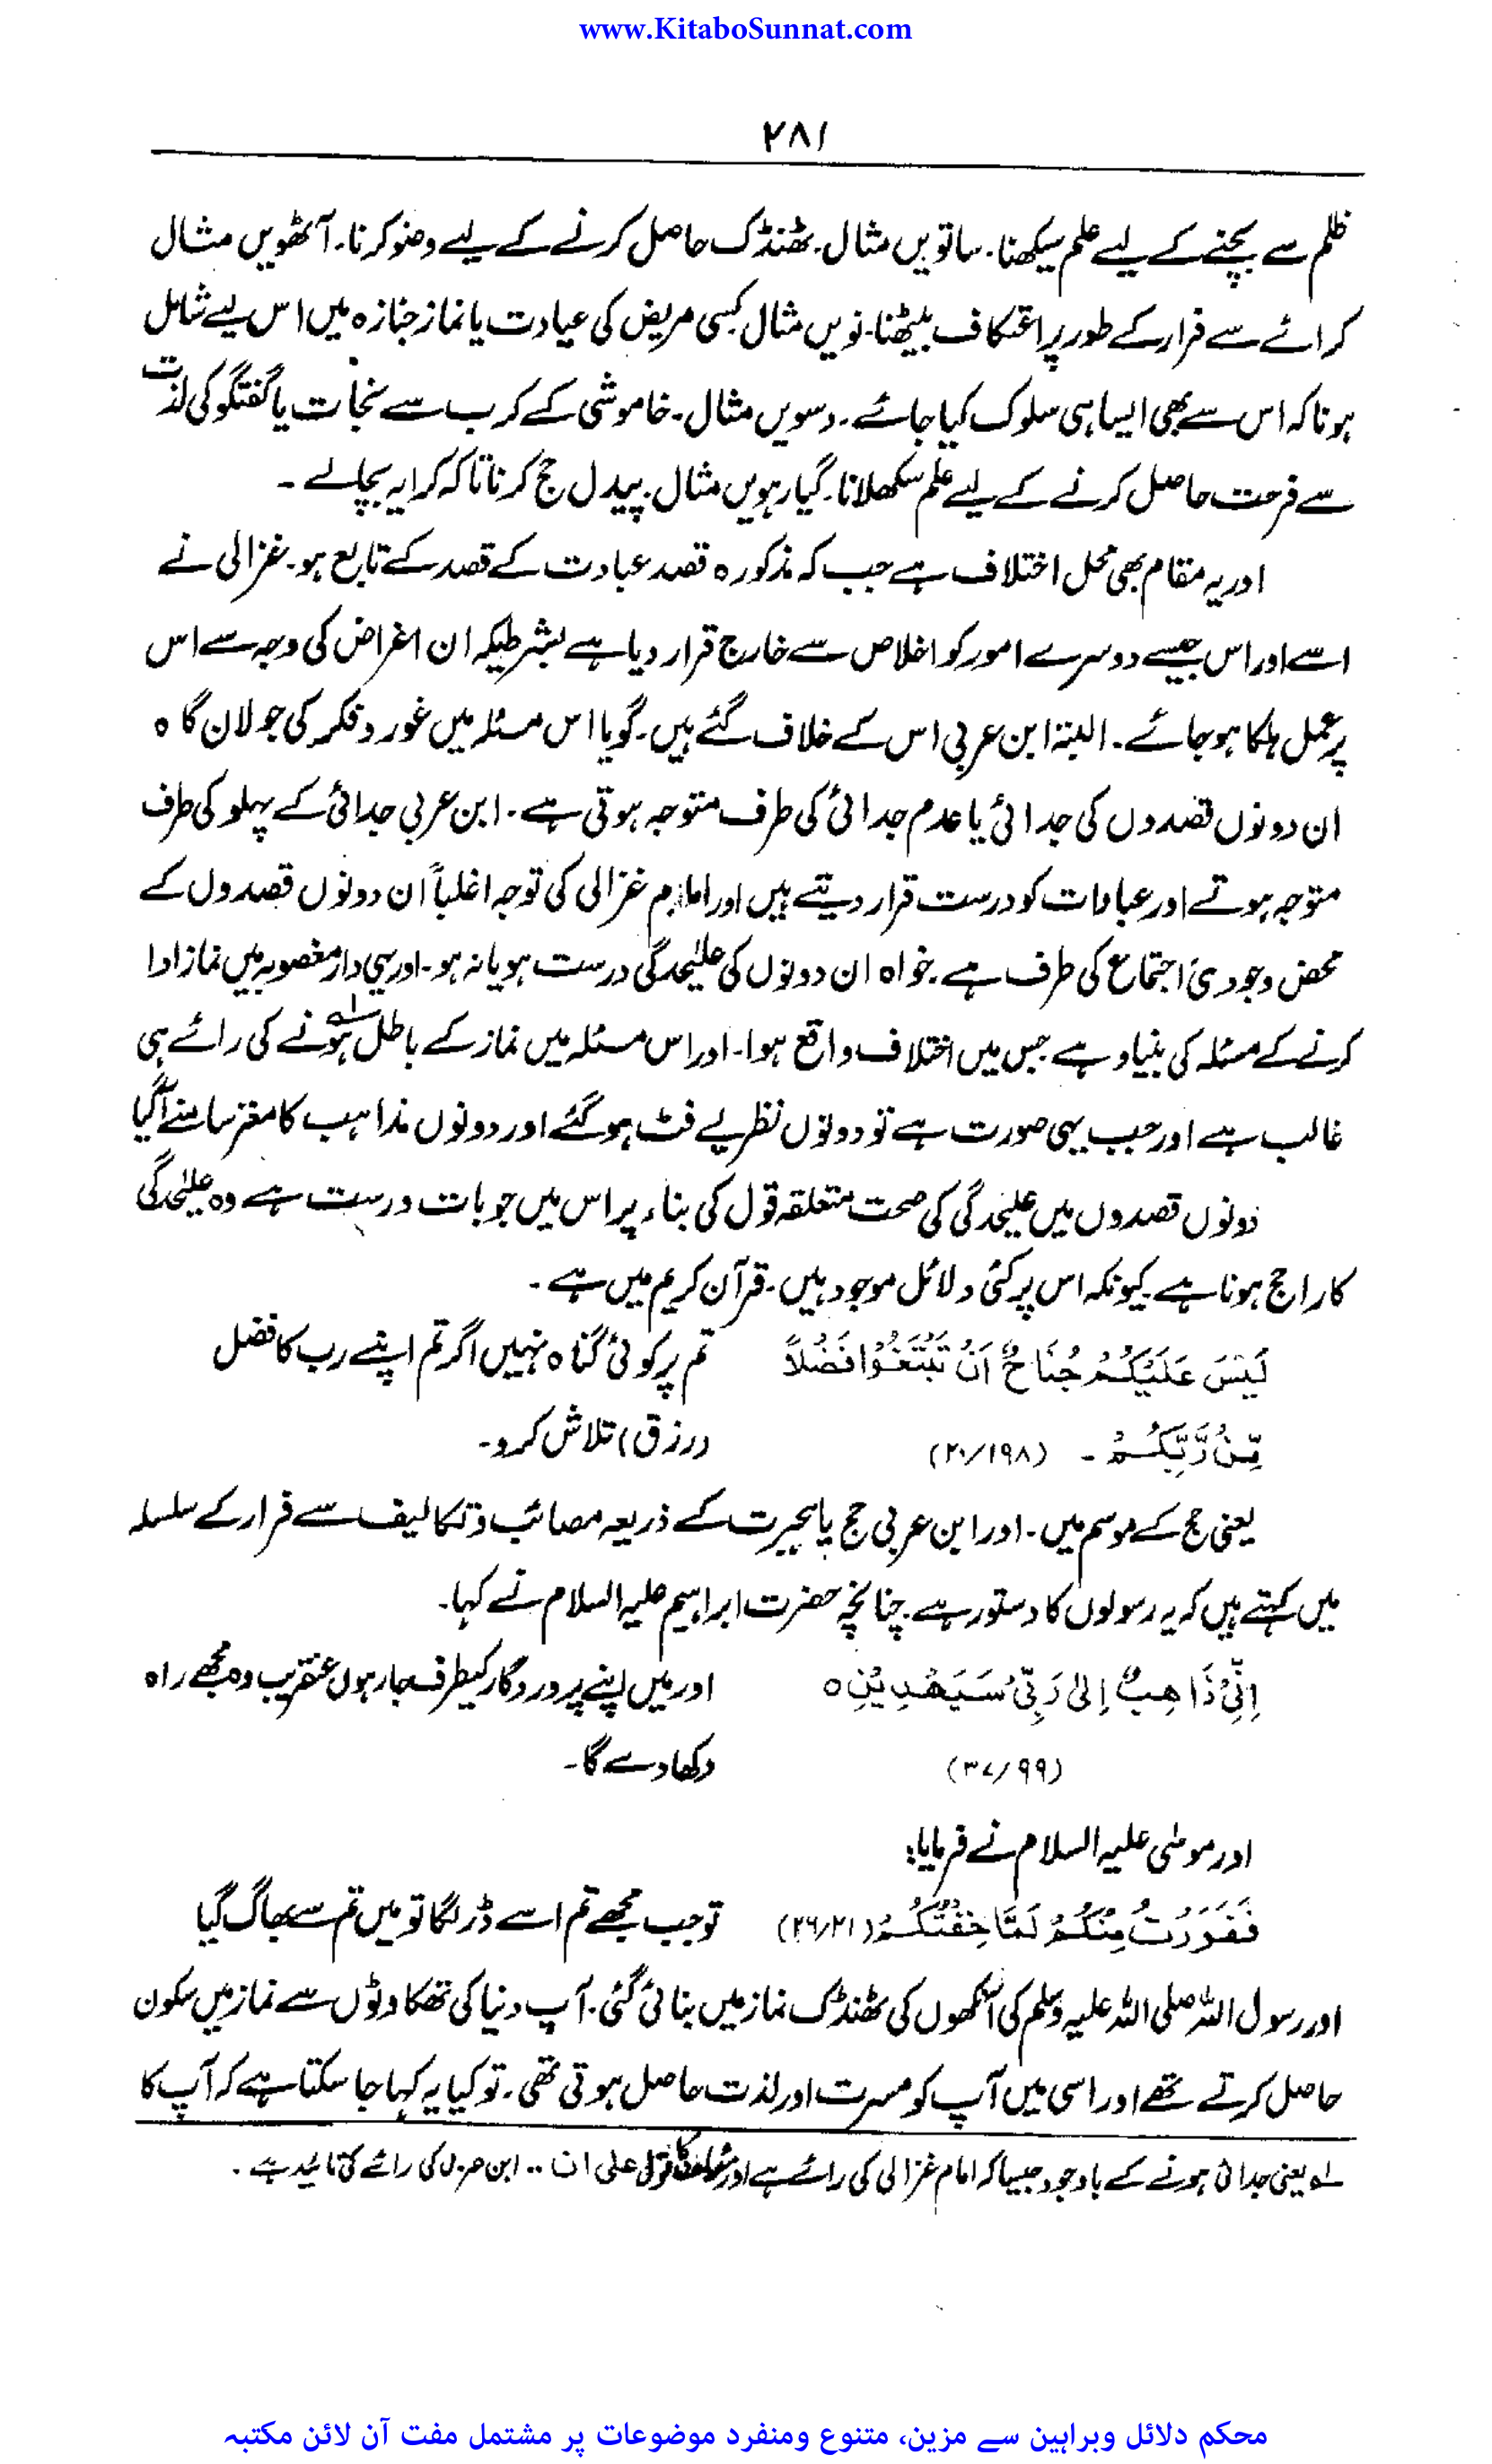 www.KitaboSunnat.com
۲۸۱
ظلم سے بچنے کے لیے علم سیکھنا۔ ساتویں مثال۔ ٹھنڈک حاصل کرنے کے لیے وضو کرنا۔ آٹھویں مثال
کرائے سے فرار کے طور پر اعتکاف بیٹھنا۔ نویں مثال کسی مریض کی عیادت یا نماز جنازہ میں اس لیے شامل
ہونا کہ اس سے بھی ایسا ہی سلوک کیا جائے۔ دسویں مثال۔ خاموشی کے کرب سے نجات یا گفتگو کی لذت
سے فرحت حاصل کرنے کے لیے علم سکھلانا۔ گیارہویں مثال۔ پیدل حج کرنا تاکہ کرایہ بچالے ۔
اور یہ مقام بھی محل اختلاف ہے جب کہ مذکورہ قصد عبادت کے قصد کے تابع ہو۔ غزالی نے
اسے اور اس جیسے دوسرے امور کو اخلاص سے خارج قرار دیا ہے بشرطیکہ ان اغراض کی وجہ سے اس
پر عمل ہلکا ہو جائے۔ البتہ ابن عربی اس کے خلاف گئے ہیں۔ گویا اس مسئلہ میں غور و فکر کی جولان گاہ
ان دونوں قصدوں کی جدائی یا عدم جدائی کی طرف متوجہ ہوتی ہے۔ ابن عربی جدائی کے پہلو کی طرف
متوجہ ہوتے اور عبادات کو درست قرار دیتے ہیں اور امام غزالی کی توجہ اغلباً ان دونوں قصدوں کے
محض وجودی اجتماع کی طرف ہے۔ خواہ ان دونوں کی علیٰحدگی درست ہو یا نہ ہو۔ اور یہی دار مغصوبہ میں نماز ادا
کرنے کے مسئلہ کی بنیاد ہے جس میں اختلاف واقع ہوا۔ اور اس مسئلہ میں نماز کے باطل ہونے کی رائے ہی
غالب ہے اور جب یہی صورت ہے تو دونوں نظریے فٹ ہوگئے اور دونوں مذاہب کا مغز سامنے آگیا
دونوں قصدوں میں علیٰحدگی کی صحت متعلقہ قول کی بناء پر اس میں جو بات درست ہے وہ علیٰحدگی
کا راجح ہونا ہے۔ کیونکہ اس پر کئی دلائل موجود ہیں۔ قرآن کریم میں ہے ۔
لَيْسَ عَلَيْكُمْ جُنَاحٌ اَنْ تَبْتَغُوْا فَضْلًا تم پر کوئی گناہ نہیں اگر تم اپنے رب کا فضل
مِّنْ رَّبِّكُمْ ۔ (۲۰/۱۹۸) (رزق) تلاش کرو۔
یعنی حج کے موسم میں۔ اور ابن عربی حج یا ہجرت کے ذریعہ مصائب و تکالیف سے فرار کے سلسلہ
میں کہتے ہیں کہ یہ رسولوں کا دستور ہے۔ چنانچہ حضرت ابراہیم علیہ السلام نے کہا۔
اِنِّىْ ذَاهِبٌ اِلٰى رَبِّىْ سَيَهْدِيْنِ ه اور میں اپنے پروردگار کیطرف جارہوں عنقریب وہ مجھے راہ
(۳۷/۹۹) دکھا دے گا۔
اور موسٰی علیہ السلام نے فرمایا:
فَفَرَرْتُ مِنْكُمْ لَمَّا خِفْتُكُمْ (۲۶/۲۱) تو جب مجھے تم اسے ڈر لگا تو میں تم سے بھاگ گیا
اور رسول اللہ صلی اللہ علیہ وسلم کی آنکھوں کی ٹھنڈک نماز میں بنائی گئی۔ آپ دنیا کی تھکاوٹوں سے نماز میں سکون
حاصل کرتے تھے اور اسی میں آپ کو مسرت اور لذت حاصل ہوتی تھی۔ تو کیا یہ کہا جا سکتا ہے کہ آپ کا
لہ یعنی جدائی ہونے کے باوجود جیسا کہ امام غزالی کی رائے ہے اور علی ان .. ابن عربی کی رائے کی تائید ہے ۔
محکم دلائل وبراہین سے مزین، متنوع ومنفرد موضوعات پر مشتمل مفت آن لائن مکتبہ